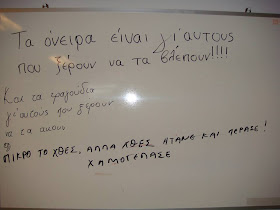 Τα όνειρα είναι γι'αυτους
που ξέρουν να τα βλέπουν!!!!
Και τα τραγούδια
γι'αυτους που ξερουν
να τα ακουν
ΜΙΚΡΟ ΤΟ ΧΘΕΣ, ΑΛΛΑ ΧΘΕΣ ΗΤΑΝΕ ΚΑΙ ΠΕΡΑΣΕ!
ΧΑΜΟΓΕΛΑΣΕ